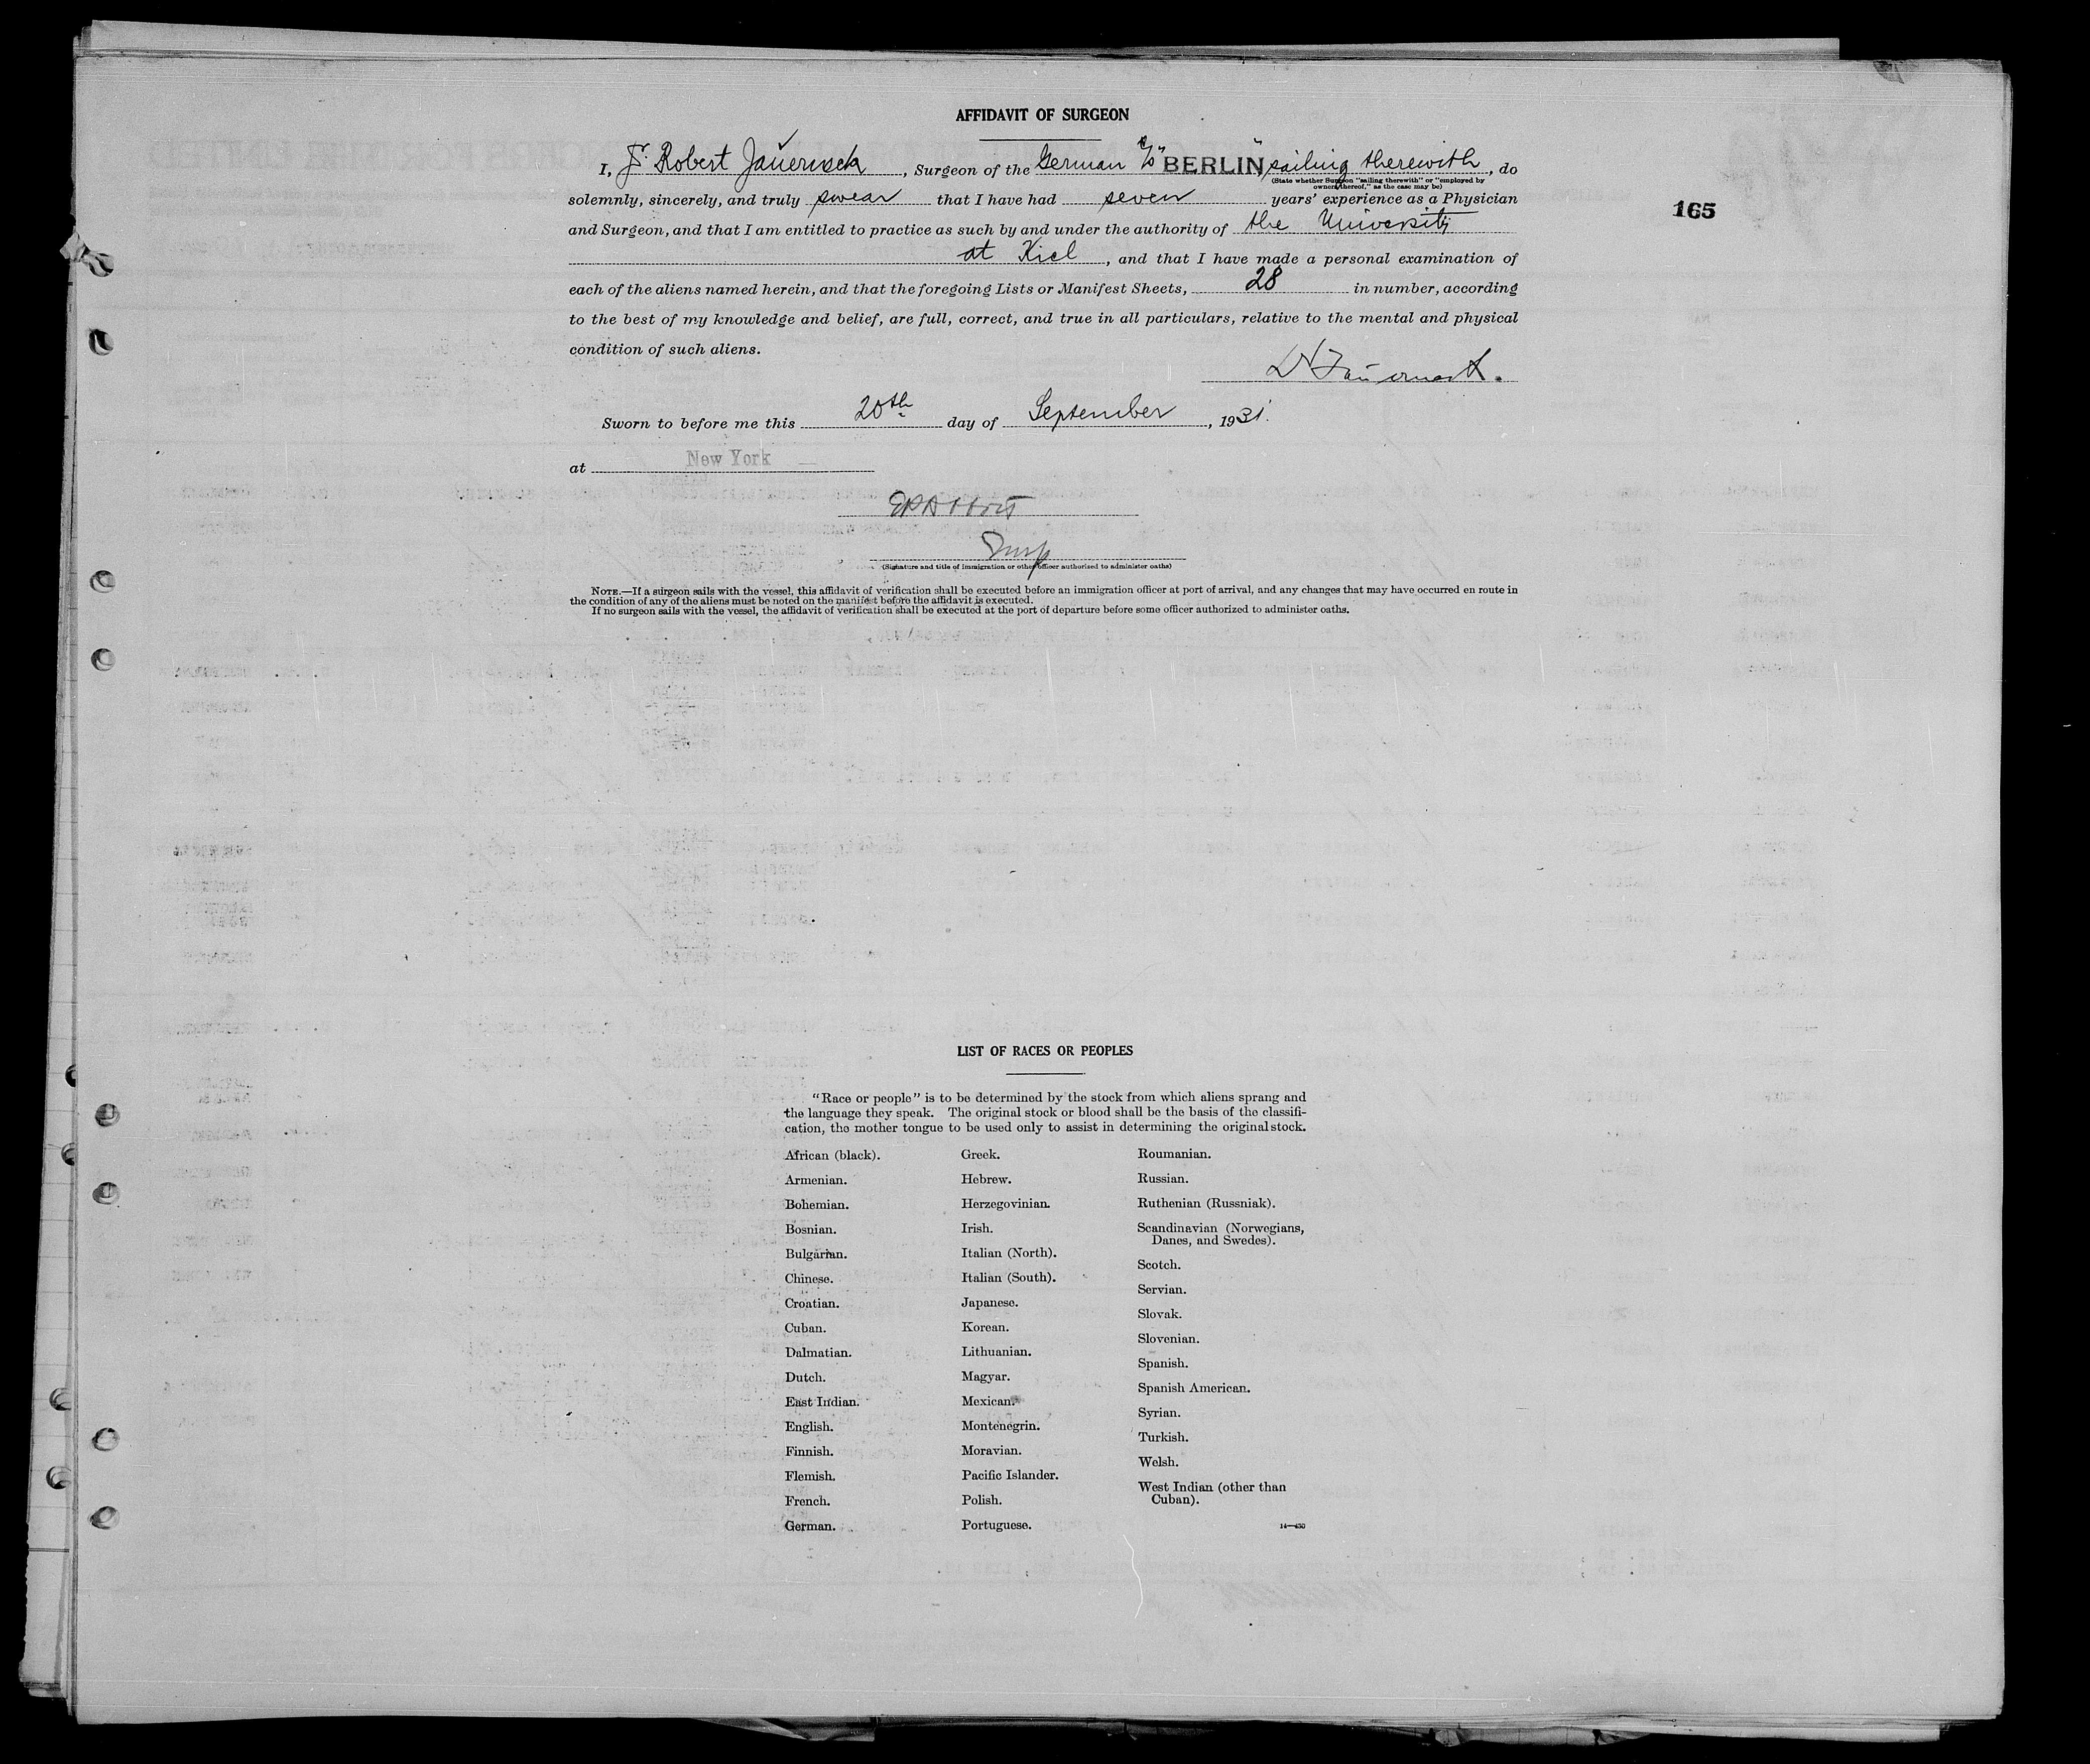 AFFIDAVIT OF SURGEON
I, Dr. Robert Jauernick, Surgeon of the German S/S "BERLIN" sailing therewith, do
(State whether Surgeon "sailing therewith" or "employed by
owners thereof," as the case may be)
165
solemnly, sincerely, and truly swear that I have had seven years' experience as a Physician
and Surgeon, and that I am entitled to practice as such by and under the authority of the University
at Kiel, and that I have made a personal examination of
each of the aliens named herein, and that the foregoing Lists or Manifest Sheets, 28 in number, according
to the best of my knowledge and belief, are full, correct, and true in all particulars, relative to the mental and physical
condition of such aliens.
Sworn to before me this 20th day of September, 1931.
at New York
(Signature and title of immigration or other officer authorized to administer oaths)
NOTE.—If a surgeon sails with the vessel, this affidavit of verification shall be executed before an immigration officer at port of arrival, and any changes that may have occurred en route in
the condition of any of the aliens must be noted on the manifest before the affidavit is executed.
If no surgeon sails with the vessel, the affidavit of verification shall be executed at the port of departure before some officer authorized to administer oaths.
LIST OF RACES OR PEOPLES
"Race or people" is to be determined by the stock from which aliens sprang and
the language they speak. The original stock or blood shall be the basis of the classifi-
cation, the mother tongue to be used only to assist in determining the original stock.
African (black).
Armenian.
Bohemian.
Bosnian.
Bulgarian.
Chinese.
Croatian.
Cuban.
Dalmatian.
Dutch.
East Indian.
English.
Finnish.
Flemish.
French.
German.
Greek.
Hebrew.
Herzegovinian.
Irish.
Italian (North).
Italian (South).
Japanese.
Korean.
Lithuanian.
Magyar.
Mexican.
Montenegrin.
Moravian.
Pacific Islander.
Polish.
Portuguese.
Roumanian.
Russian.
Ruthenian (Russniak).
Scandinavian (Norwegians,
Danes, and Swedes).
Scotch.
Servian.
Slovak.
Slovenian.
Spanish.
Spanish American.
Syrian.
Turkish.
Welsh.
West Indian (other than
Cuban).